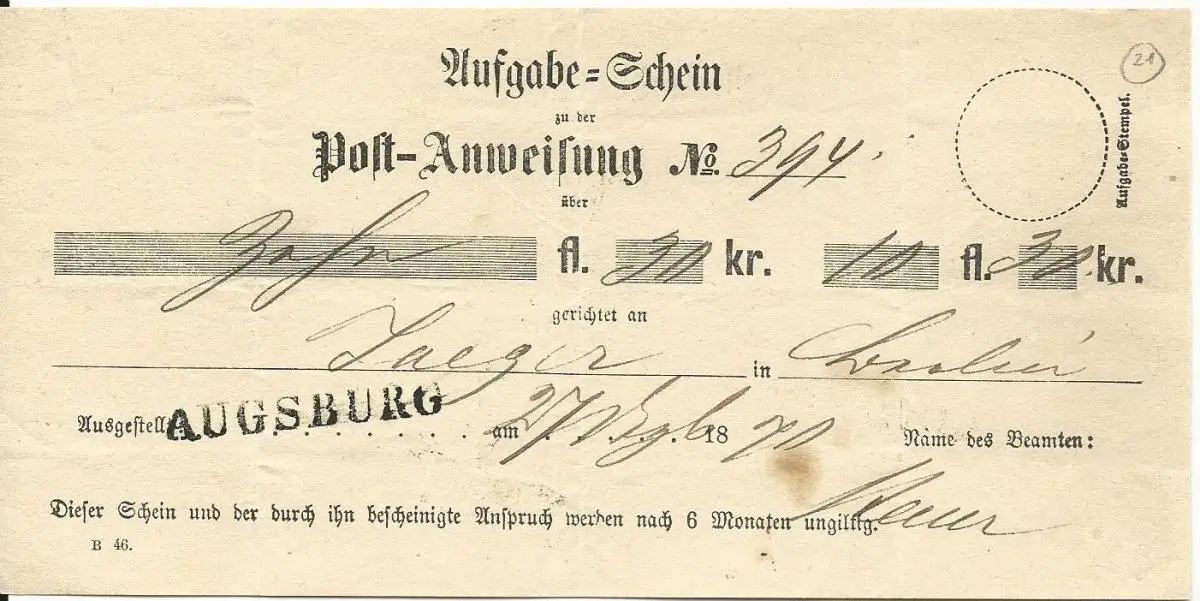 Aufgabe=Schein
21
zu der
Post-Anweisung No. 394.
Aufgabe=Stempel.
über
Zehn fl. 30 kr. 10 fl. 30 kr.
gerichtet an
Jaeger in Berlin
Ausgestell AUGSBURG am 27 18 70 Name des Beamten:
Dieser Schein und der durch ihn bescheinigte Anspruch werden nach 6 Monaten ungiltig.
B 46.